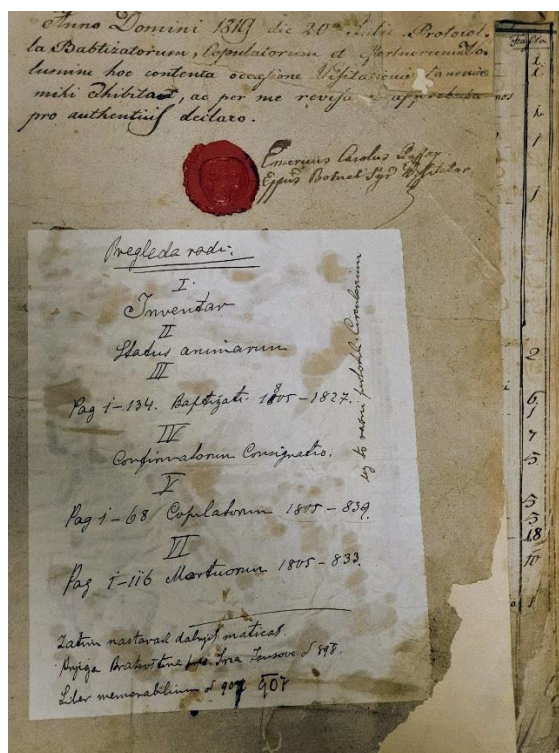 Anno Domini 1819 die 20ª Julii Protocol-
la Babtizatorum, Copulatorum et Mortuorum Vo-
lumine hoc contenta occasione Visitationis Canonicae
mihi Exhibita, ac per me revisa et approbata
pro authentius declaro.
Emericus Carolus
Eppus
Pregleda radi:
I
Inventar
II
Status animarum
III
Pag 1-134. Baptizati 1805-1827.
IV
Confirmatorum Consignatio.
V
Pag 1-68 Copulatorum 1805-839.
VI
Pag 1-116 Mortuorum 1805-833.
Zatim nastavak daljnjih matica.
Knjiga Bratovštine Srca Isusova od 898.
Liber memorabilium od 907 907
uz to razni protokol Circularium
2
6
1
7
5
5
5
18
10